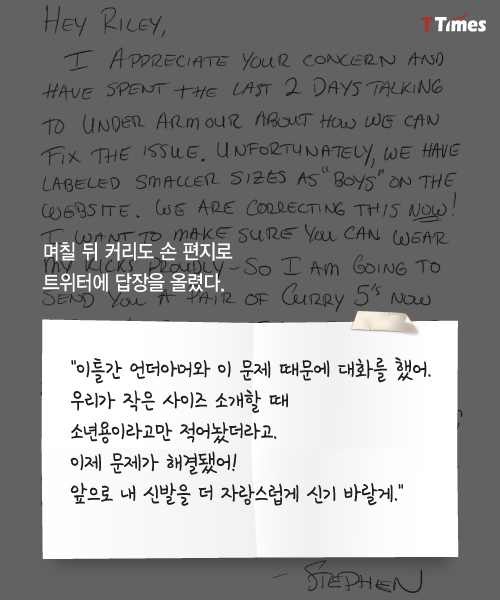 HEY RILEY,
TTimes
I APPRECIATE YOUR CONCERN AND
HAVE SPENT THE LAST 2 DAYS TALKING
TO UNDER ARMOUR ABOUT HOW WE CAN
FIX THE ISSUE. UNFORTUNATELY, WE HAVE
LABELED SMALLER SIZES AS "BOYS" ON THE
WEBSITE. WE ARE CORRECTING THIS NOW!
I WANT TO MAKE SURE YOU CAN WEAR
며칠 뒤 커리도 손 편지로
MY KICKS PROUDLY - SO I AM GOING TO
트위터에 답장을 올렸다.
SEND YOU A PAIR OF CURRY 5's NOW
"이틀간 언더아머와 이 문제 때문에 대화를 했어.
우리가 작은 사이즈 소개할 때
소년용이라고만 적어놨더라고.
이제 문제가 해결됐어!
앞으로 내 신발을 더 자랑스럽게 신기 바랄게."
- STEPHEN